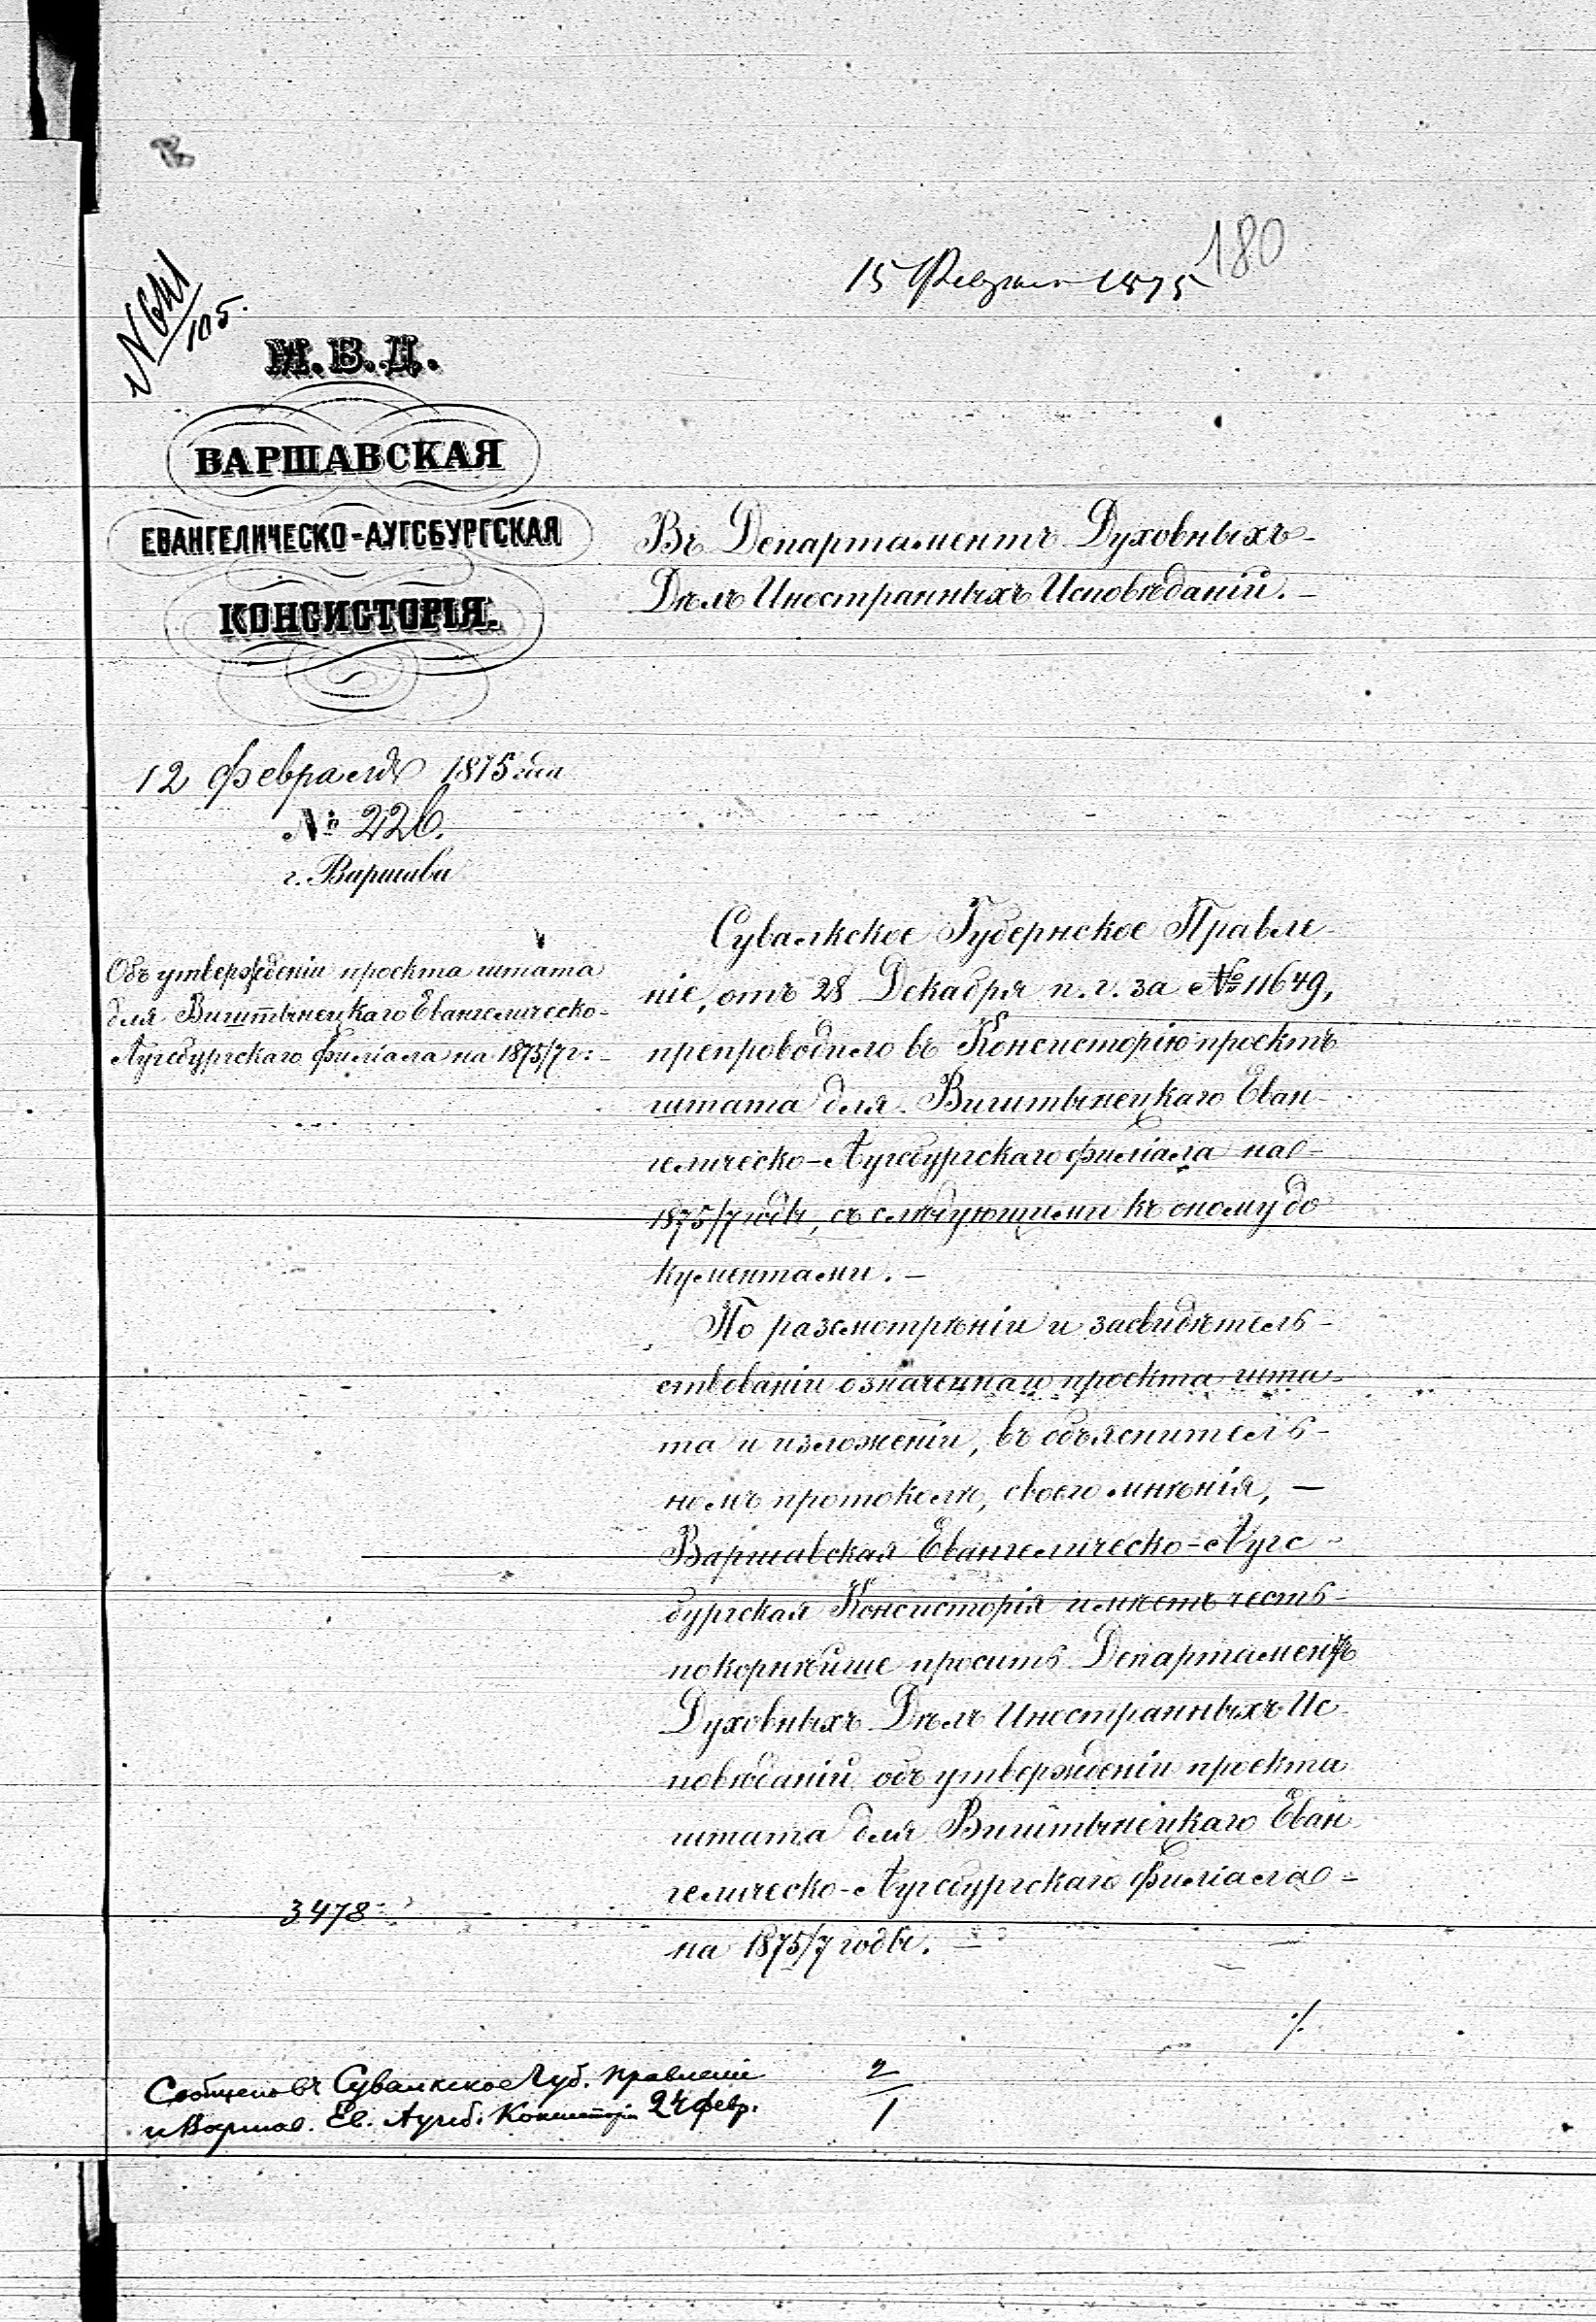 180
15 Февраля 1875
№ 641/105.
М.В.Д.
ВАРШАВСКАЯ
ЕВАНГЕЛИЧЕСКО-АУГСБУРГСКАЯ
КОНСИСТОРІЯ.
12 Февраля 1875 года
№ 226.
г. Варшава
Объ утвержденіи проекта штата
для Виштынецкаго Евангелическо-
Аугсбургскаго Филіала на 1875/7 г:
Въ Департаментъ Духовныхъ
Дѣлъ Иностранныхъ Исповѣданій. –
Сувалкское Губернское Правле-
ніе, отъ 28 Декабря п. г. за № 11649,
препроводило въ Консисторію проектъ
штата для Виштынецкаго Еван-
гелическо-Аугсбургскаго филіала на
1875/7 годы, съ слѣдующими къ оному до
кументами. –
По разсмотрѣніи и засвидѣтель-
ствованіи означеннаго проекта шта-
та и изложеніи, въ объяснитель-
номъ протоколѣ, своего мнѣнія, –
Варшавская Евангелическо-Аугс-
бургская Консисторія имѣетъ честь
покорнѣйше просить Департаментъ
Духовныхъ Дѣлъ Иностранныхъ Ис
повѣданій объ утвержденіи проекта
штата для Виштынецкаго Еван
гелическо-Аугсбургскаго Филіала
на 1875/7 годы. –
3478
Сообщено въ Сувалкское Губ. Правленіе
и Варшав. Ев. Аугсб. Консисторію 24 февр.
2/1